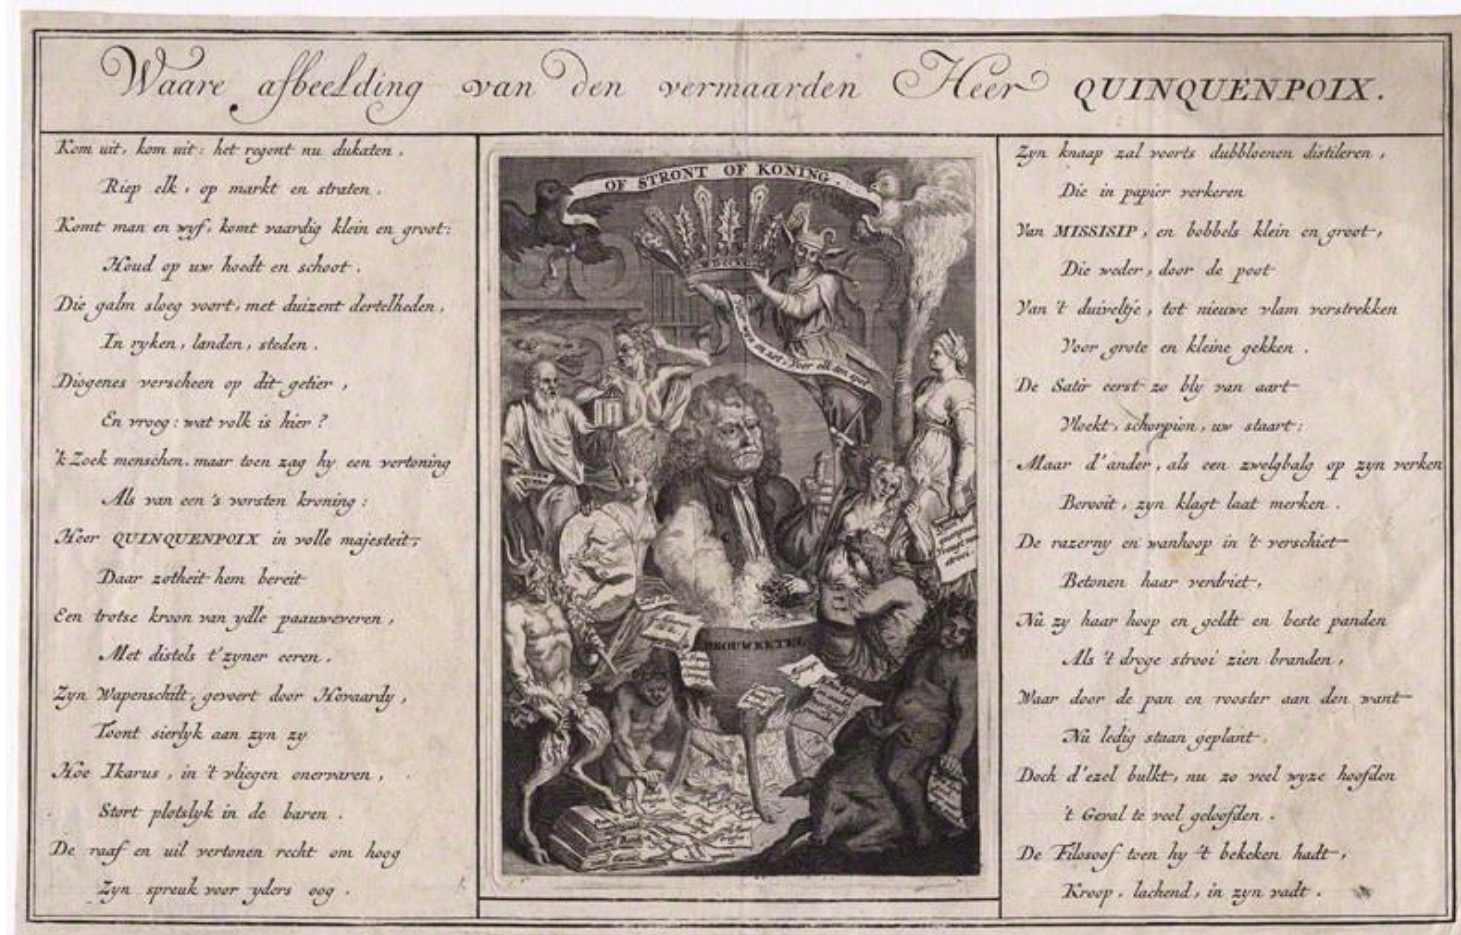 Waare afbeelding van den vermaarden Heer QUINQUENPOIX.
Kom uit, kom uit: het regent nu dukaten,
Riep elk, op markt en straten.
Komt man en wyf, komt vaardig klein en groot:
Houd op uw hoedt en schoot.
Die galm sloeg voort, met duizent dertelheden,
In ryken, landen, steden.
Diogenes verscheen op dit getier,
En vroeg: wat volk is hier?
'k Zoek menschen, maar toen zag hy een vertoning
Als van een 's vorsten kroning:
Heer QUINQUENPOIX in volle majesteit;
Daar zotheit hem bereit
Een trotse kroon van ydle paauweveren,
Met distels t'zyner eeren.
Zyn Wapenschilt, gevoert door Hovaardy,
Toont sierlyk aan zyn zy
Hoe Ikarus, in 't vliegen onervaren,
Stort plotslyk in de baren.
De raaf en uil vertonen recht om hoog
Zyn spreuk voor yders oog.
OF STRONT OF KONING.
voor elk een spot
BROUWKETEL
Zyn knaap zal voorts dubbloenen distileren,
Die in papier verkeren
Van MISSISIP, en bobbels klein en groot,
Die weder, door de poot
Van 't duiveltje, tot nieuwe vlam verstrekken
Voor grote en kleine gekken.
De Satir eerst zo bly van aart
Vloekt, schorpion, uw staart:
Maar d'ander, als een zwelgbalg op zyn verken
Berooit, zyn klagt laat merken.
De razerny en wanhoop in 't verschiet
Betonen haar verdriet,
Nu zy haar hoop en geldt en beste panden
Als 't droge strooi zien branden,
Waar door de pan en rooster aan den want
Nu ledig staan geplant.
Doch d'ezel bulkt, nu zo veel wyze hoofden
't Geval te veel geloofden.
De Filosoof toen hy 't bekeken hadt,
Kroop, lachend, in zyn vadt.